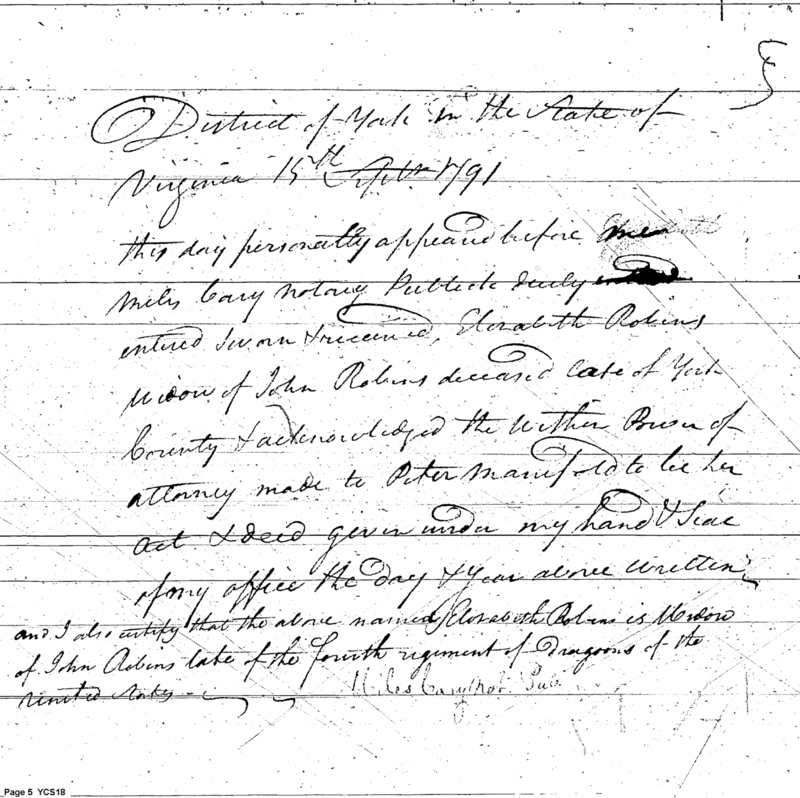 District of York in the State of
Virginia 15th Septbr 1791
this day personally appeared before me
Miles Cary Notary Publick duely
entered sworn & received, Elizabeth Robins
Widow of John Robins deceased late of York
County & acknowledged the within Power of
attorney made to Peter Manifold to be her
act & deed given under my hand & Seal
of my office the day & Year above written
and I also certify that the above named Elizabeth Robins is Widow
of John Robins late of the fourth regiment of Dragoons of the
United States
Miles Cary Not. Pub.
Page 5 YCS18